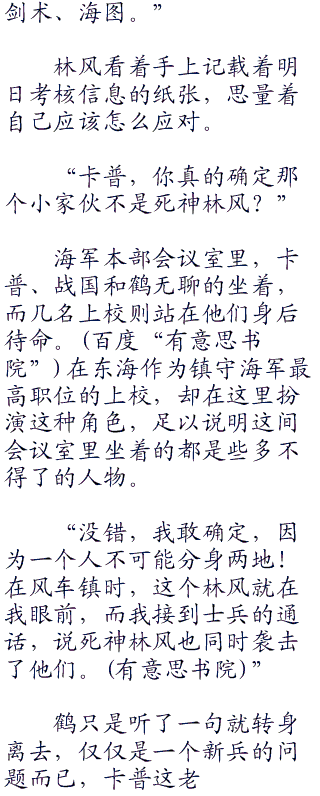 剑术、海图。”
林风看着手上记载着明
日考核信息的纸张，思量着
自己应该怎么应对。
“卡普，你真的确定那
个小家伙不是死神林风？”
海军本部会议室里，卡
普、战国和鹤无聊的坐着，
而几名上校则站在他们身后
待命。(百度“有意思书
院”)在东海作为镇守海军最
高职位的上校，却在这里扮
演这种角色，足以说明这间
会议室里坐着的都是些多不
得了的人物。
“没错，我敢确定，因
为一个人不可能分身两地！
在风车镇时，这个林风就在
我眼前，而我接到士兵的通
话，说死神林风也同时袭击
了他们。(有意思书院)”
鹤只是听了一句就转身
离去，仅仅是一个新兵的问
题而已，卡普这老